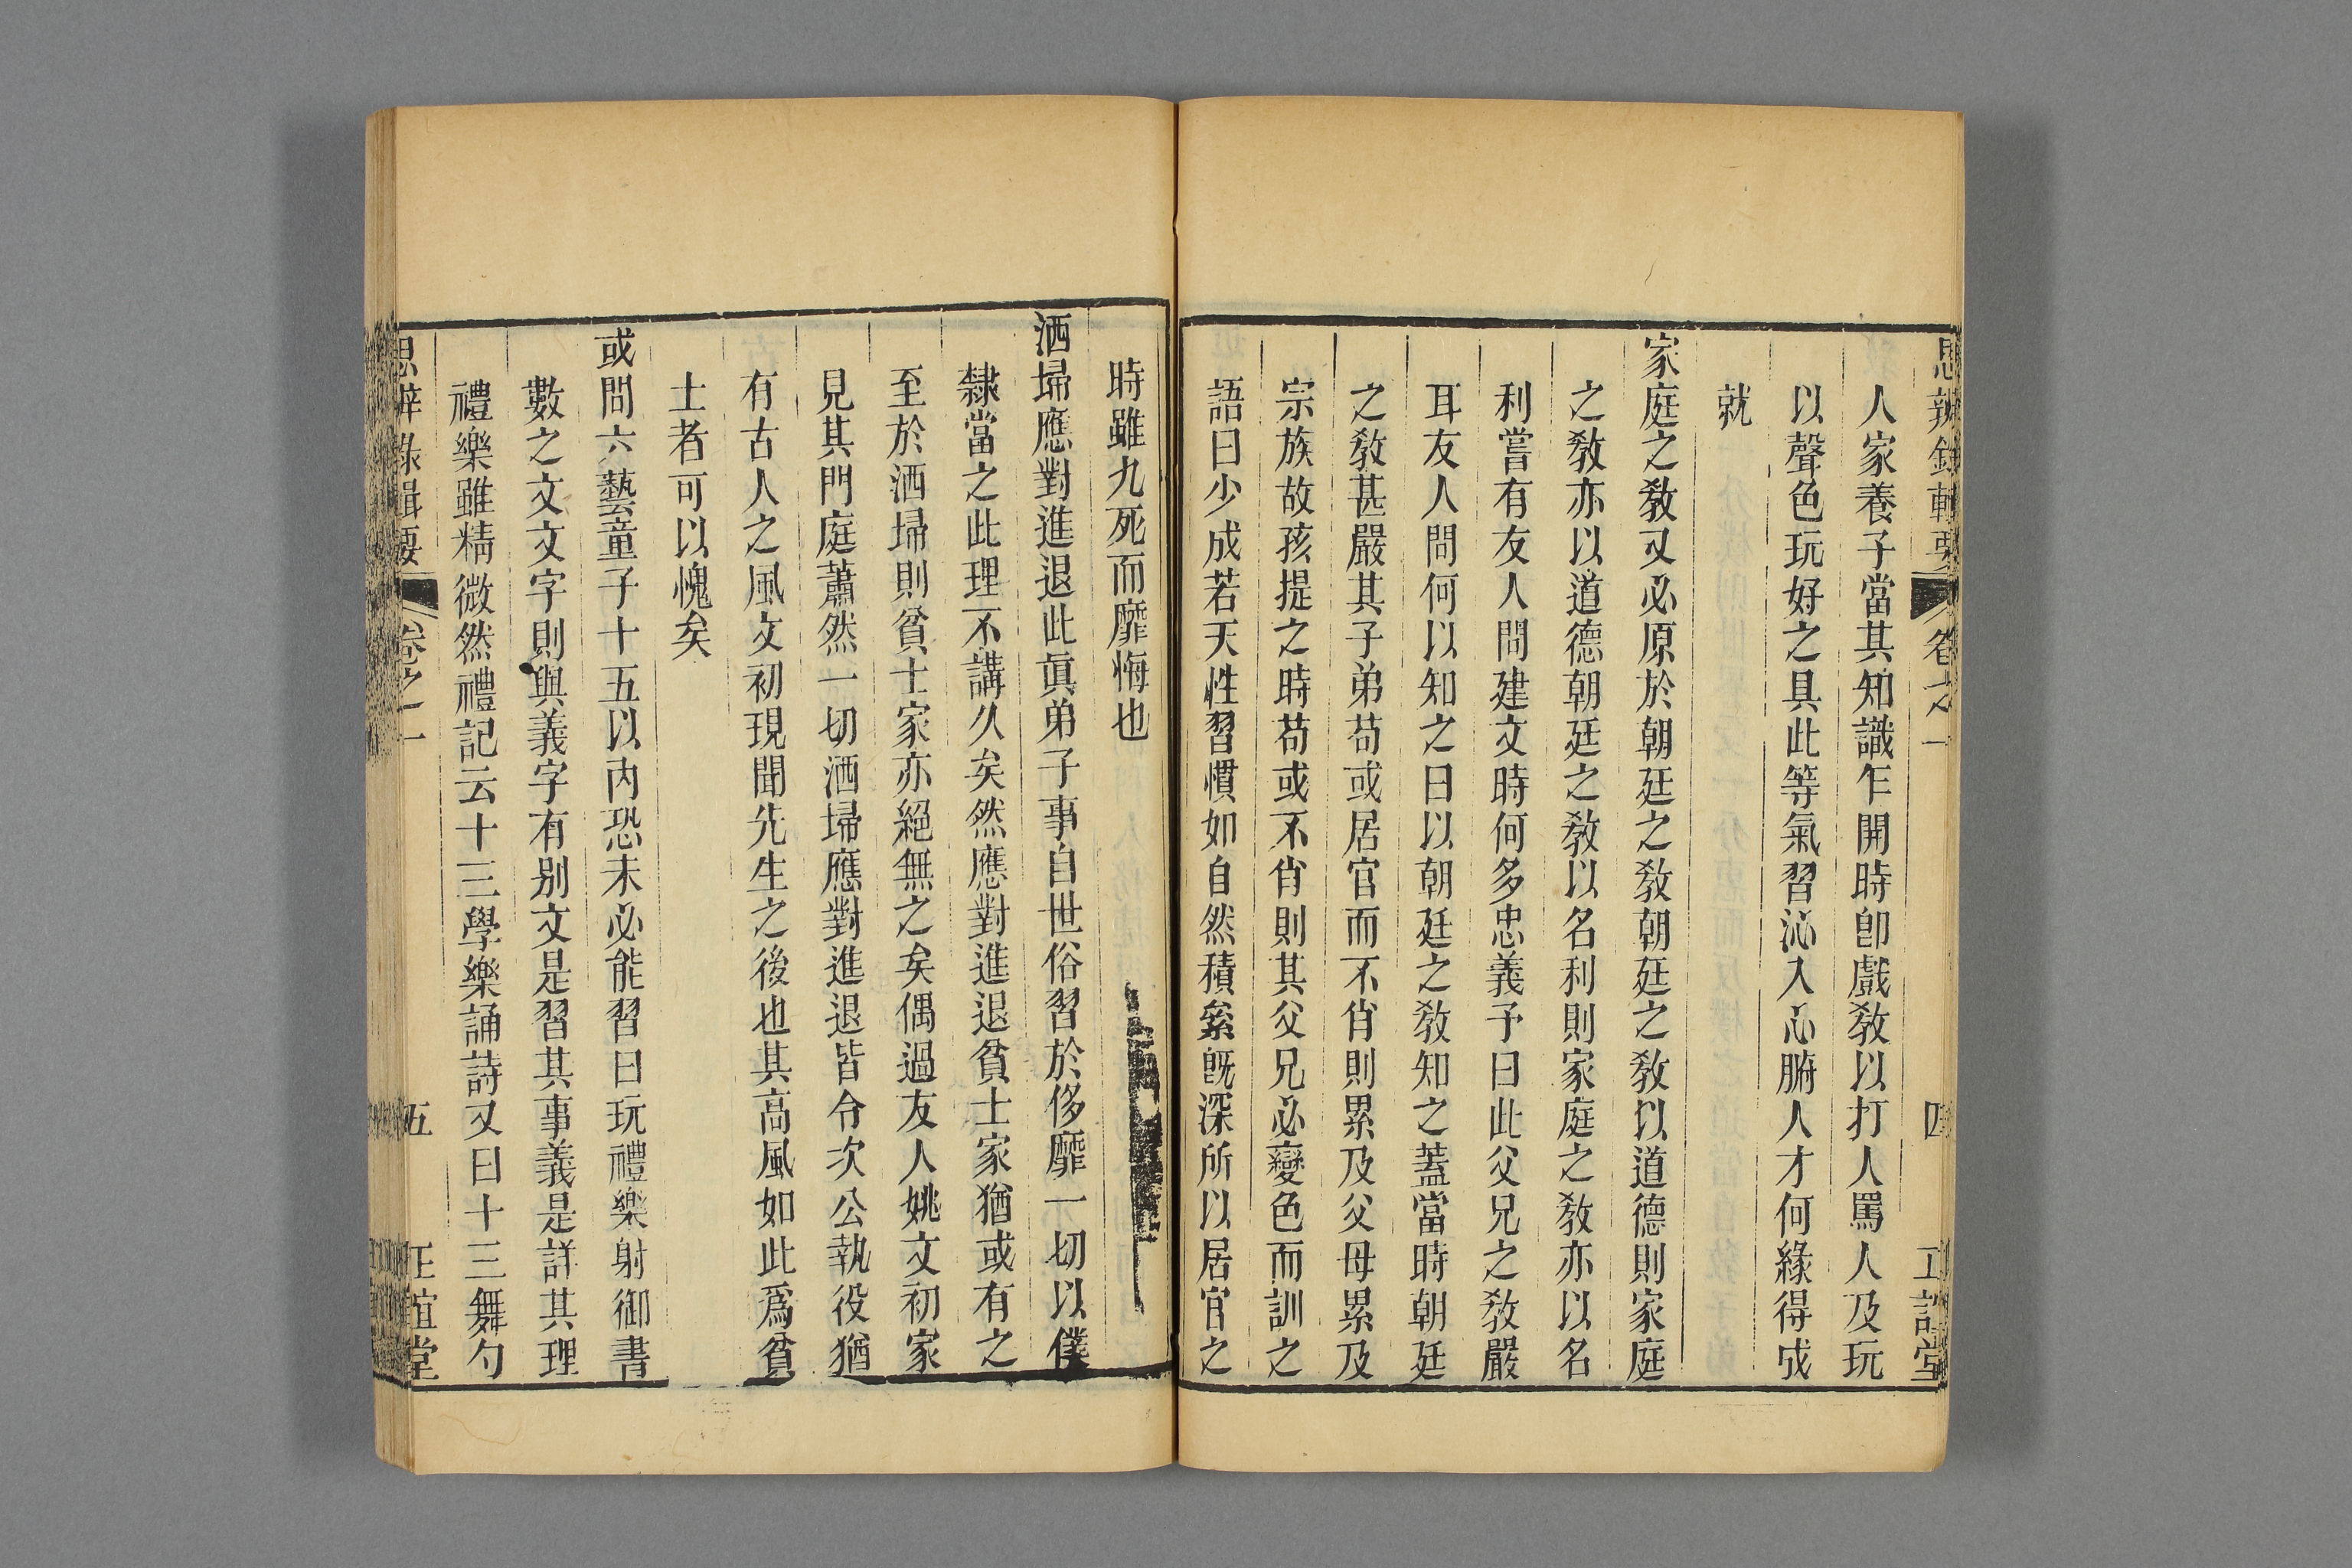 思辨錄輯要 卷之一 四 正誼堂
人家養子當其知識乍開時卽戲敎以打人罵人及玩
以聲色玩好之具此等氣習沁入心腑人才何緣得成
就
家庭之敎又必原於朝廷之敎朝廷之敎以道德則家庭
之敎亦以道德朝廷之敎以名利則家庭之敎亦以名
利嘗有友人問建文時何多忠義予曰此父兄之敎嚴
耳友人問何以知之曰以朝廷之敎知之蓋當時朝廷
之敎甚嚴其子弟苟或居官而不肖則累及父母累及
宗族故孩提之時苟或不肖則其父兄必變色而訓之
語曰少成若天性習慣如自然積絫旣深所以居官之
時雖九死而靡悔也
洒埽應對進退此眞弟子事自世俗習於侈靡一切以僕
隸當之此理不講久矣然應對進退貧士家猶或有之
至於洒埽則貧士家亦絕無之矣偶過友人姚文初家
見其門庭蕭然一切洒埽應對進退皆令次公執役猶
有古人之風文初現聞先生之後也其高風如此爲貧
士者可以愧矣
或問六藝童子十五以內恐未必能習曰玩禮樂射御書
數之文文字則與義字有别文是習其事義是詳其理
禮樂雖精微然禮記云十三學樂誦詩又曰十三舞勺
思辨錄輯要 卷之一 五 正誼堂